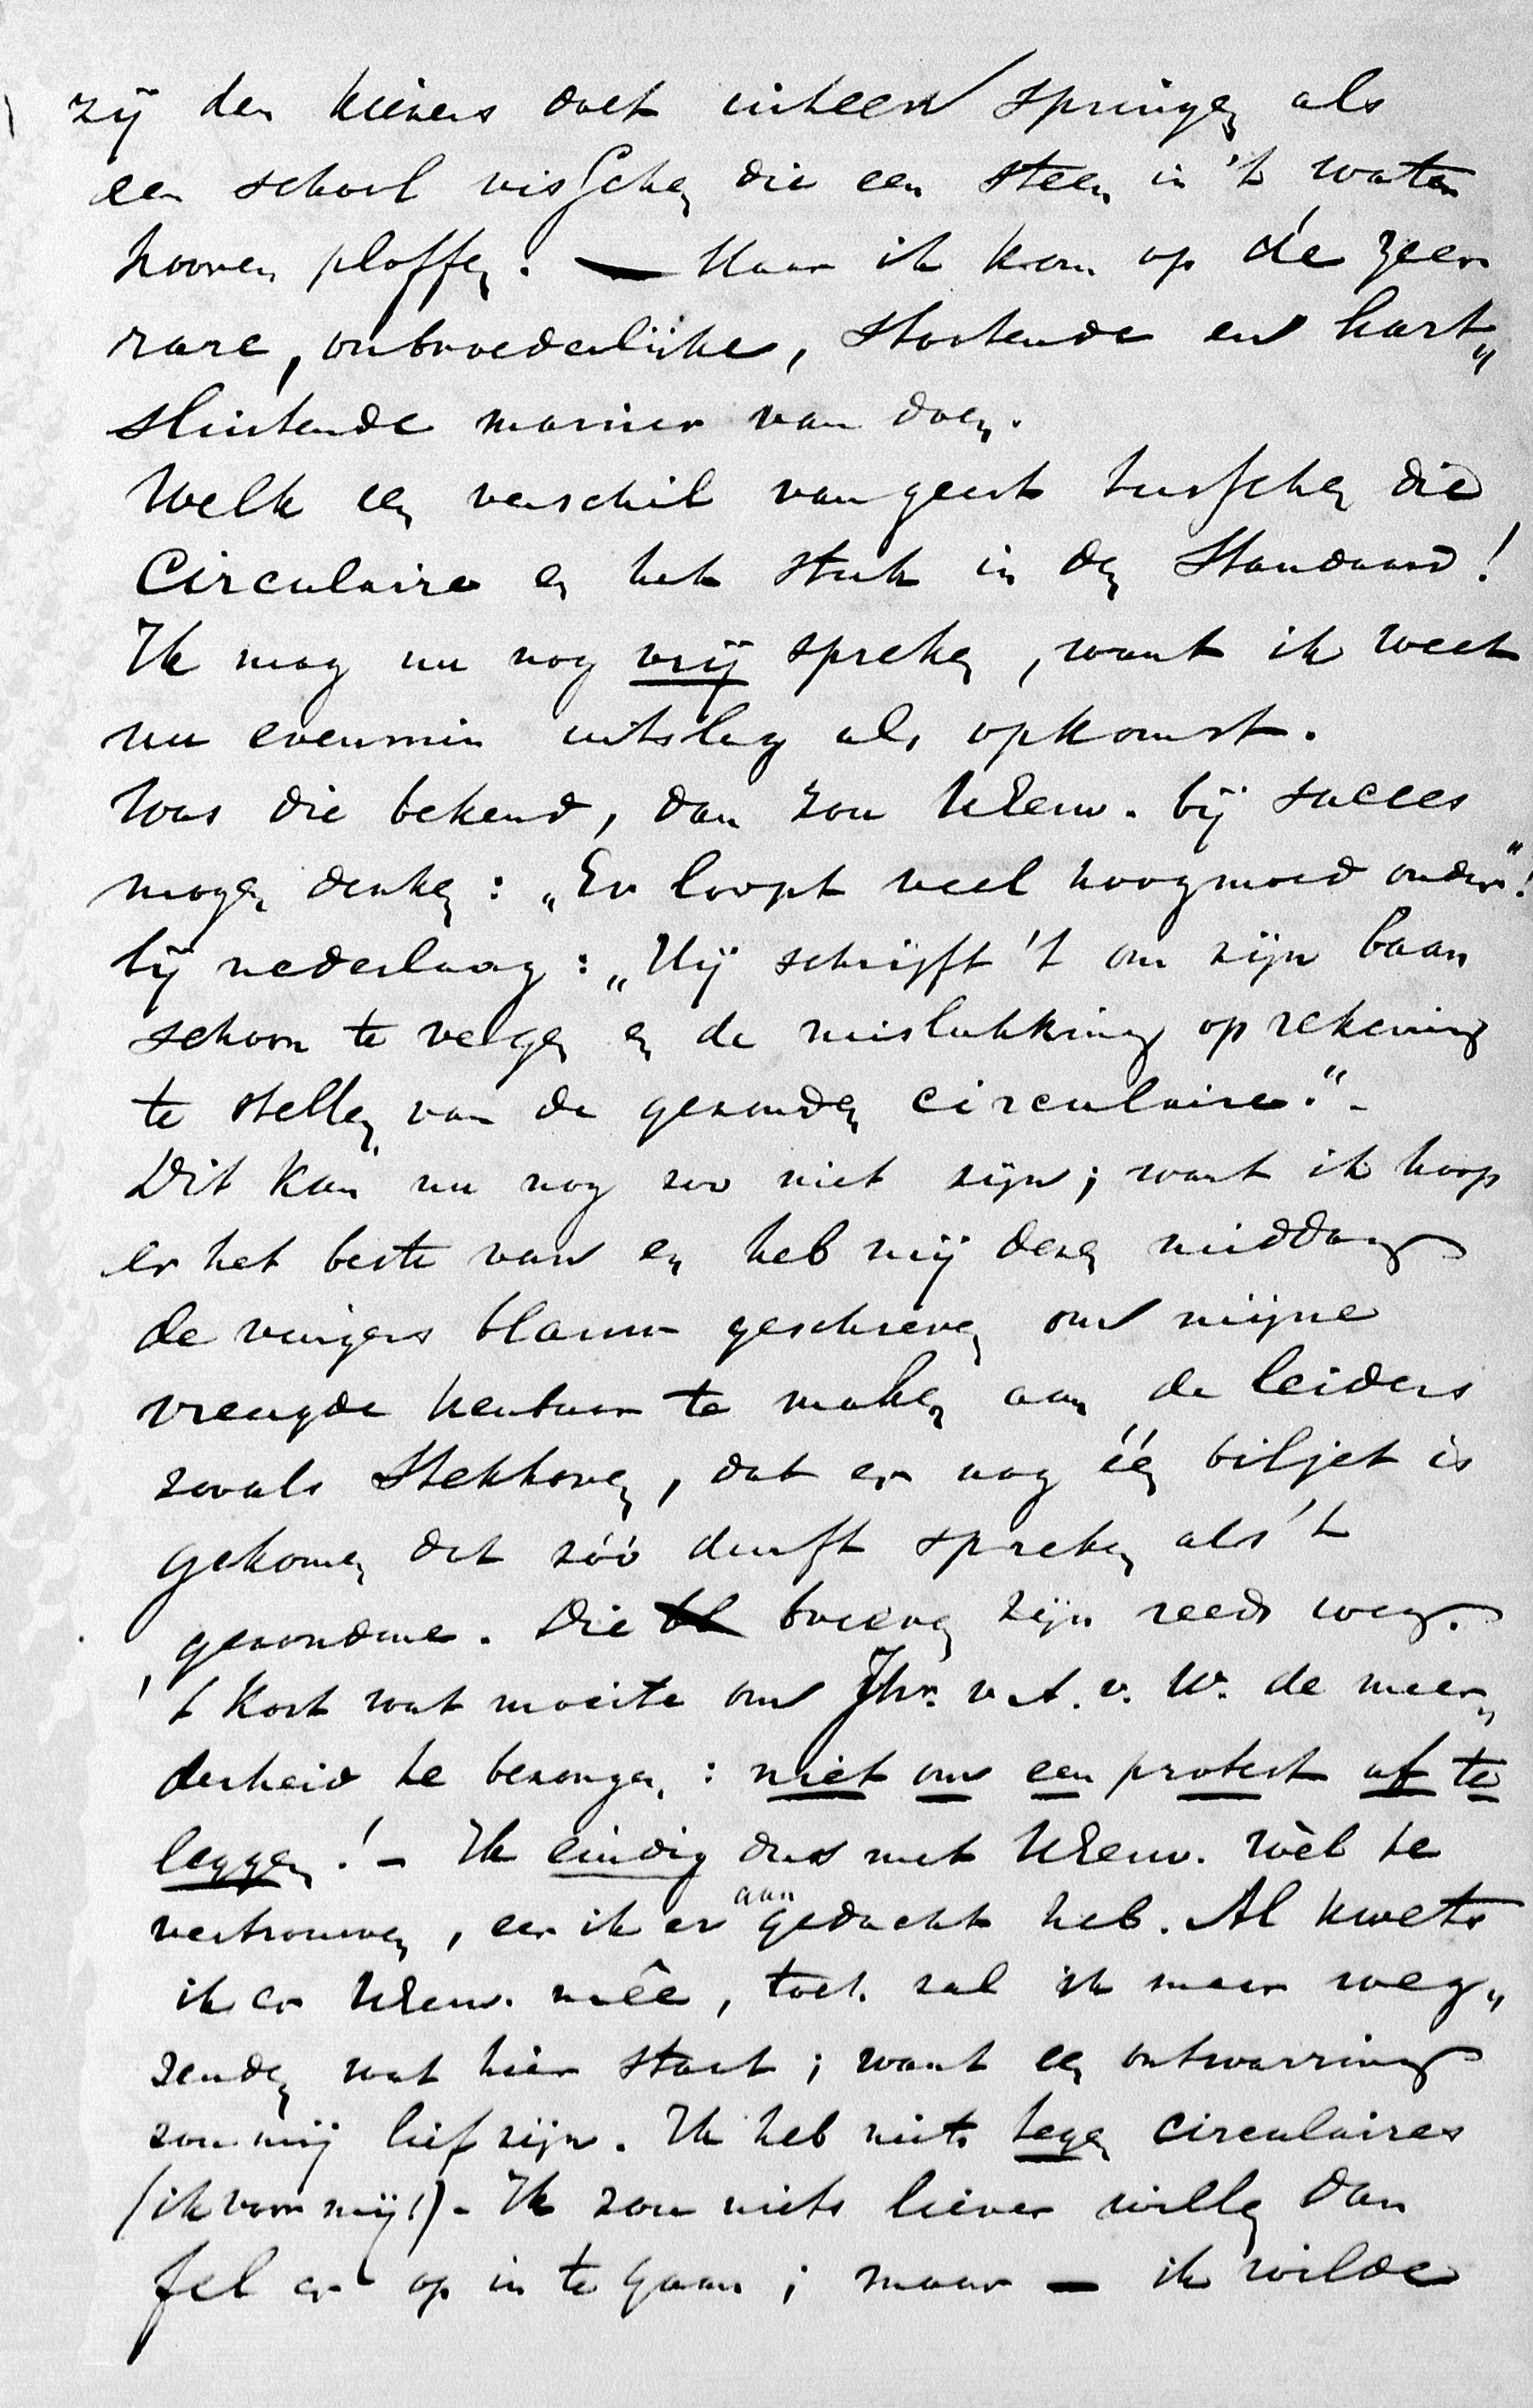 zij den kiezers doet uiteen springen als
een school visschen die een steen in 't water
hooren ploffen. — Maar ik kom op dé zeer
rare, onbroederlijke, stootende en hart„
stuitende manier van doen.
Welk een verschil van geest tusschen die
Circulaire en het stuk in den Standaard!
Ik mag nu nog vrij spreken, want ik weet
nu evenmin uitslag als opkomst.
Was die bekend, dan zou UEerw. bij succes
mogen denken: „Er loopt veel hoogmoed onder“!
bij nederlaag: „Hij schrijft 't om zijn baan
schoon te vegen en de mislukking op rekening
te stellen van de gezonden circulaire.“ -
Dit kan nu nog zoo niet zijn; want ik hoop
er het beste van en heb mij dezen middag
de vingers blauw geschreven om mijne
vreugde kenbaar te maken aan de leiders
zooals Stekhoven, dat er nog één biljet is
gekomen dat zóó durft spreken als 't
gezondene. Die brieven zijn reeds weg.
't Kost wat moeite om Jhr. v. A. v. W. de meer„
derheid te bezorgen: niet om een protest af te
leggen! - Ik eindig dus met UEerw. wèl te
vertrouwen, eer ik er aan gedacht heb. Al kwets
ik er UEerw. mêe, toch zal ik maar weg„
zenden wat hier staat; want een ontwarring
zou mij lief zijn. Ik heb niets tegen circulaires
(ik voor mij!) - Ik zou niets liever willen dan
fel er op in te gaan; maar — ik wilde